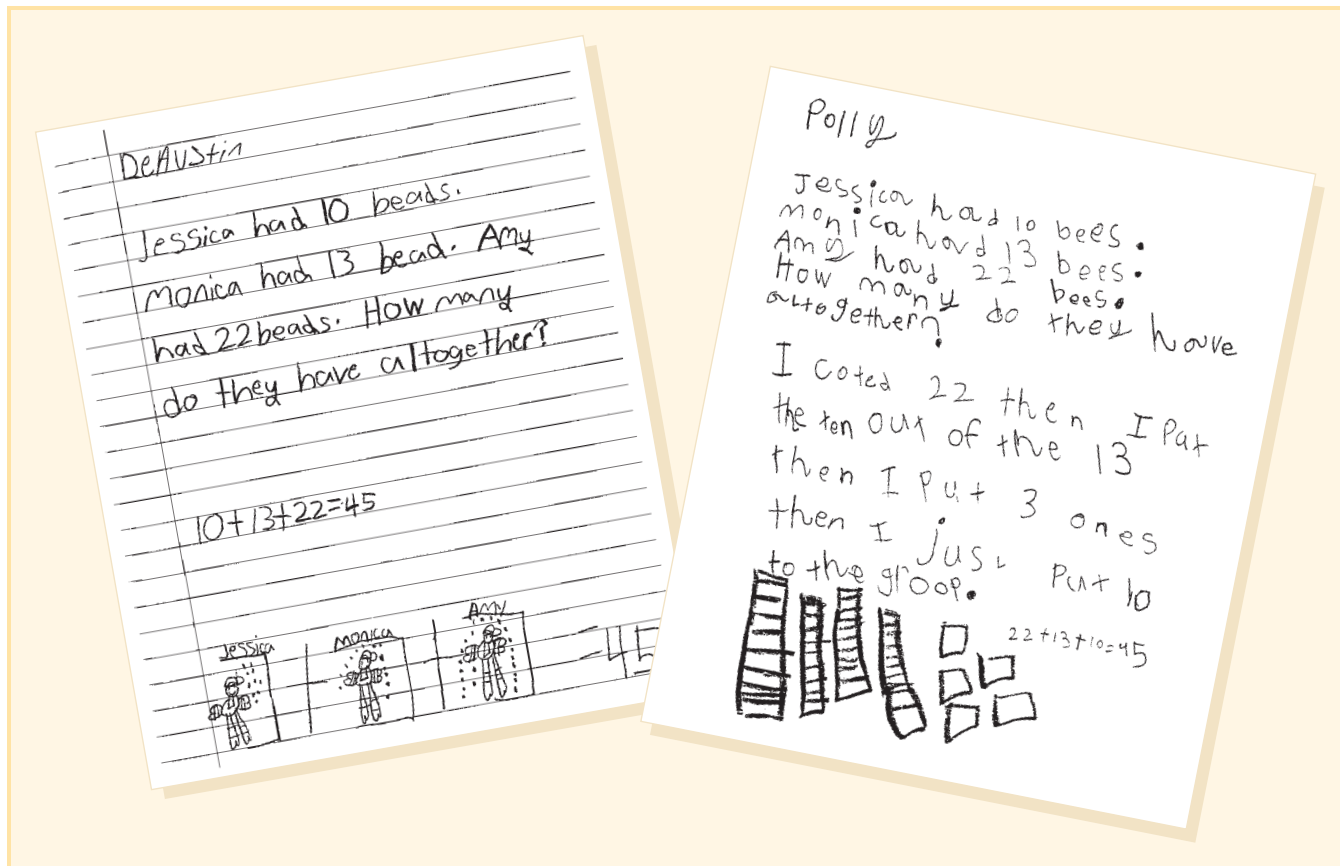 DeAustin
Jessica had 10 beads.
Monica had 13 bead. Amy
had 22 beads. How many
do they have altogether?
10+13+22=45
Jessica
Monica
Amy
=45
Polly
Jessica had 10 bees.
monica had 13 bees.
Amy had 22 bees.
How many do they have
autogether?
I coted 22 then I Put
the ten out of the 13
then I put 3 ones
then I just Put 10
to the groop.
22+13+10=45